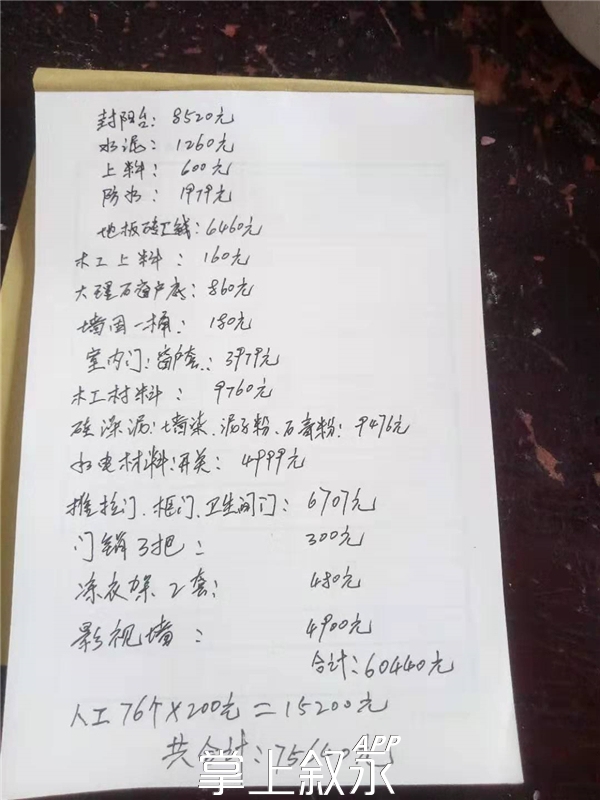 封阳台：8520元
水泥：1260元
上料：600元
防水：1979元
地板砖工钱：6460元
木工上料：160元
大理石窗户底：860元
墙固一桶：180元
室内门：窗户套：3979元
木工材料：9760元
硅藻泥：墙漆、泥子粉、石膏粉：9476元
水电材料：开关：4999元
推拉门、框门、卫生间门：6707元
门锁3把： 300元
凉衣架2套： 480元
影视墙： 4900元
合计：60440元
人工76个×200元=15200元
共合计：75
掌上叙永APP